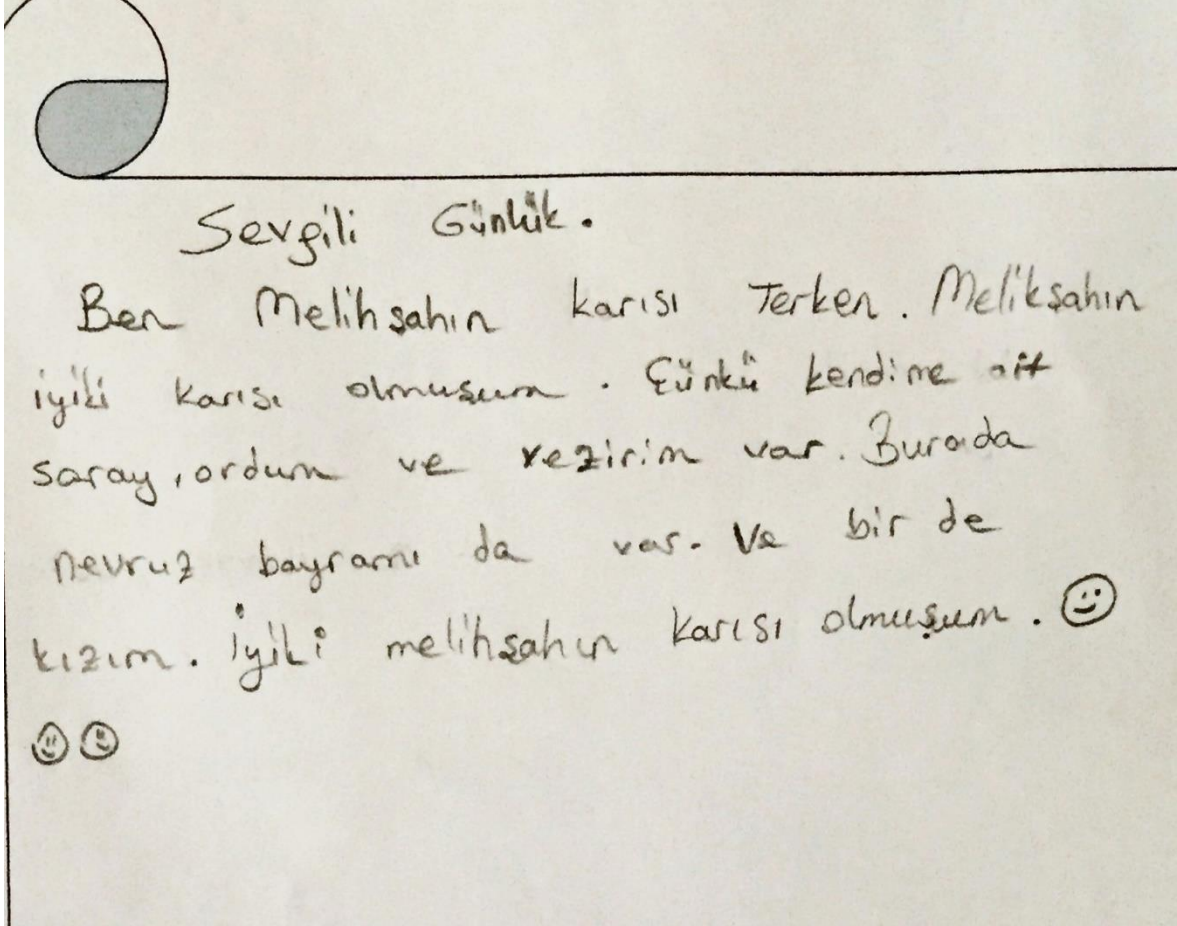 Sevgili Günlük.
Ben Melihşahın karısı Terken. Melikşahın
iyiki karısı olmuşum. Çünkü kendime ait
saray, ordum ve vezirim var. Burada
nevruz bayramı da var. Ve bir de
kızım. İyiki melihşahın karısı olmuşum. ☺
☺☺